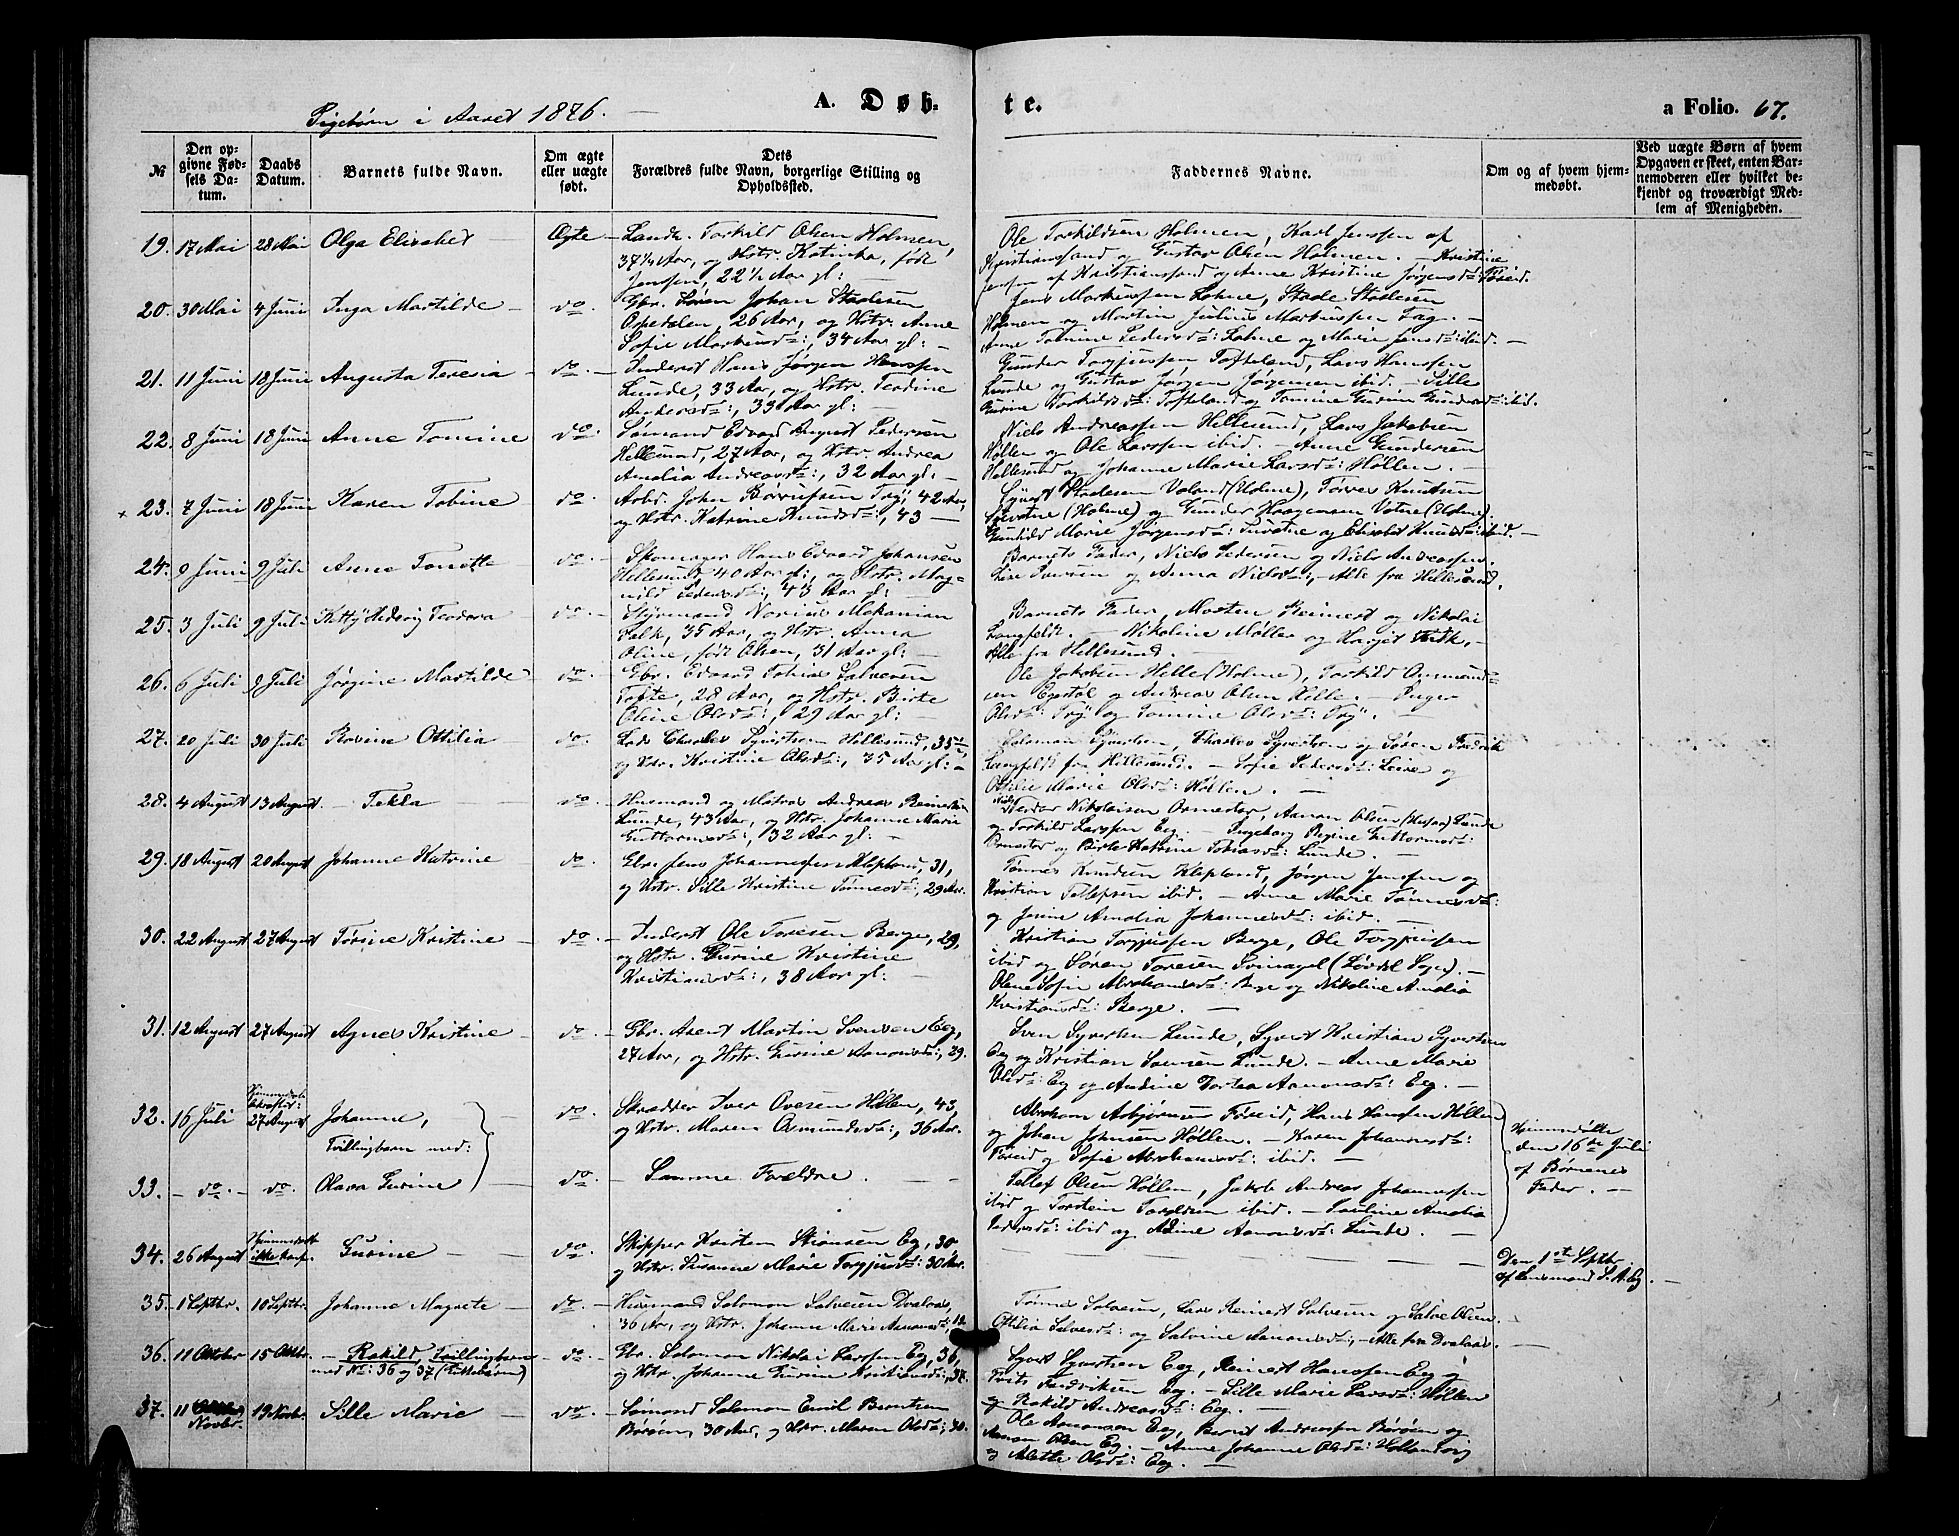 Pigebørn i Aaret 1876.
A. Døb-
te.
a Folio. 67.
№
Den op-
givne Fød-
sels Da-
tum.
Daabs
Datum.
Barnets fulde Navn.
Om ægte
eller uægte
født.
Dets
Forældres fulde Navn, borgerlige Stilling og
Opholdssted.
Faddernes Navne.
Om og af hvem hjem-
medøbt.
Ved uægte Børn af hvem
Opgaven er skeet, enten Bar-
nemoderen eller hvilket be-
kjendt og troværdigt Med-
lem af Menigheden.
19. 17 Mai 28 Mai Olga Elisabet Ægte
Torkild Olsen Holmen,
37¼ Aar, og Hstr. Katinka, født
Jensen, 22½ Aar gl: —
Ole Torkildsen Holmen, Karl Jensen af
Kristiansand og Gustav Olsen Holmen. — Kristine
Jensen af Kristiansand og Anne Kristine Jørgensd:
20. 30 Mai 4 Juni Inga Martilde — do. —
Gbr. Søren Johan Stadesen
Ospedalen, 26 Aar, og Hstr. Anne
Sofie Markusd:, 34 Aar gl: —
Jens Markussen Lohne, Stade Stadesen
Holmen og Martin Julius Markussen —
Anne Tomine Pedersd: Lohne og Marie Jensd: ibid. —
21. 11 Juni 18 Juni Augusta Teresia — do. —
Inderst Hans Jørgen Hanssen
Lunde, 33 Aar, og Hstr. Teodine
Andersd:, 33 Aar gl: —
Gunder Torgjussen Tofteland, Lars Hanssen
Lunde og Gustav Jørgen Jørgensen ibid. — Sille
Gurine Torkildsd: Tofteland og Tomine Gudine Gundersd: ibid.
22. 8 Juni 18 Juni Anne Tomine — do. —
Sømand Edvard August Pedersen
Hellesund, 27 Aar, og Hstr. Andrea
Amalia Andreasd:, 32 Aar gl: —
Niels Andreassen Hellesund, Lars Jakobsen
Høllen og Ole Larssen ibid. — Anne Gundersen
Hellesund og Johanne Marie Larsd: Høllen. —
× 23. 7 Juni 18 Juni Karen Tobine do. —
Arbd. John Trÿ 42 Aar,
og Hstr. Katrine Knudsd:, 43 —
Syvert Stadesen Voland (Holme), Tørres Knutsen
(Holme) og Gunder Haagensen Votne (Holme).
Gunhild Marie Jørgensd: og Elisabet Knudsd: ibid. —
24. 9 Juni 9 Juli Anne do. —
Skomager Hans Edvard Johansen
Hellesund 40 Aar gl:, og Hstr. Mag-
nild Pedersd:, 43 Aar gl: —
Barnets Fader, Niels Pedersen og Niels Andreassen.
Lise Iversen og Anna Nielsd:, — Alle fra Hellesund.
25. 3 Juli 9 Juli Kittÿ Hedevig Teodora do. —
Styrmand
Falk, 35 Aar, og Hstr. Anna
Oline, født Olsen, 31 Aar gl: —
Barnets Fader, Morten Reinert og Nikolai
Langfeldt. — Nikoline Møller og Falk, —
Alle fra Hellesund. —
26. 6 Juli 9 Juli Jørgine Martilde — do. —
Gbr. Edvard Tobias Salvesen
Tofte, 28 Aar, og Hstr. Birte
Oline Olsd:, 29 Aar gl: —
Ole Jakobsen Helle (Holme), Torkild Ommund-
sen Egestøl og Andreas Olsen Helle. — Inger
Olsd: Trÿ og Tomine Olsd: Trÿ. —
27. 20 Juli 30 Juli Rovine Ottilia do. —
Lods Charles Syvertsen Hellesund, 35
og Hstr. Kristine Olsd:, 35 Aar gl: —
Salomon Syvertsen, Charles Syvertsen og Søren Fredrik
Langfeldt fra Hellesund. — Sofie Pedersd: Leire og
Ottilie Marie Olsd: Høllen. —
28. 4 August 13 August. — Tekla — do. —
Husmand og Matros Andreas Reinertsen
Lunde, 43 Aar, og Hstr. Johanne Marie
Guttormsd:, 32 Aar gl: —
Peder Nikolaisen Ormestør, Aanon Olsen Lunde
og Torkild Larssen Eeg. — Ingeborg Regine Guttormsd:
Ormestør og Birte Katrine Tobiasd: Lunde. —
29. 18 August 20 August Johanne Katrine do. —
Gbr. Jens Johannessen Klepland, 31,
og Hstr. Sille Kristine Tønnesd:, 29 Aar.
Tønnes Knudsen Klepland, Jørgen Jenssen og
Kristian Tellefsen ibid. — Anne Marie Tønnesd:
og Jensine Amalia Johannesd: ibid. —
30. 22 August 27 August Tørine Kristine — do. —
Inderst Ole Toresen Berge, 29,
og Hstr. Gurine Kristine
Kristiansd:, 38 Aar gl: —
Kristian Torgjussen Berge, Ole Torgjussen
ibid og Søren Toresen Svinagel (Løvdal Sogn). —
Olene Sofie Abrahamsd: Berge og Nikoline Amalia
Kristiansd: Berge. —
31. 12 August 27 August Agnes Kristine — do. —
Gbr. Arent Martin Svensen Eeg,
27 Aar, og Hstr. Gurine Aanonsd:, 29.
Sven Syvertsen Lunde, Syvert Kristian Syvertsen
Eeg og Kristian Svensen Lunde. — Anne Marie
Olsd: Eeg og Andine Tortea Aanonsd: Eeg. —
32. 16 Juli 27 August Johanne, — do. —
Tvillingbarn med:
Skrædder Iver Ovesen Høllen, 43,
og Hstr. Maren Osmundsd:, 36 Aar.
Abraham Asbjørnsen Føreid, Hans Hanssen Høllen
og Johan Johnsen Høllen. — Karen Johannesd:
Føreid og Sofie Abrahamsd: ibid. —
Hjemmedøbte
den 16de Juli
af Børnenes
Fader. —
33. — do. — do. Olava Gurine do. — Samme Forældre. —
Tellef Olsen Høllen, Jakob Andreas Johannessen
ibid og Torstein Toroldsen ibid. — Pauline Amalia
Pedersd: ibid og Adine Aanonsd: Lunde. —
34. 26 August Gurine — do. —
Skipper Kristen Stiansen Eg, 30
og Hstr. Susanne Marie Torgjusd: 30 Aar.
Den 1ste Septbr.
af Lensmand S. A. Eg. —
35. 1 Septbr. 10 Septbr. Johanne Magrete — do. —
Husmand Salomon Salvesen Dvalaas,
36 Aar, og Hstr. Johanne Marie Aanonsd:, 42
Tønnes Salvesen, Lars Reinert Salvesen og Salve Olsen.
Ottilia Salvesd: og Salvine Aanonsd:, — Alle fra Dvalaas. —
36. 11 Oktobr 15 Oktbr. — Rakild Tvillingbarn — do. —
med No: 36 og 37 (Guttebørn)
Gbr. Salomon Nikolai Larssen Eg, 36,
og Hstr. Johanne Gurine Kristiansd:, 37.
Syvert Syvertsen Eeg, Reinert Hanssen Eeg og
Frits Fredriksen Eeg. — Sille Marie Larsd: Høllen
og Rakild Andreasd: Eeg. —
37. 11 Novbr. 19 Novbr. Sille Marie — do. —
Sømand Salomon Emil Berntsen
Børøen, 30 Aar, og Hstr. Maren Olsd:, 30.
Ole Aanonsen Eeg, Bernt Andreassen Børøen og
Aanon Olsen Eg. — Anne Johanne Olsd: Holteberg
og Mette Olsd: Eeg. —